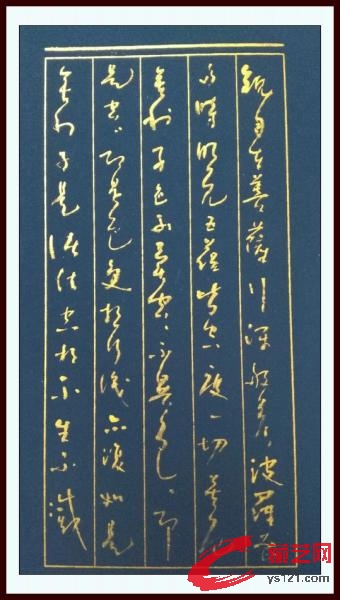 觀自在菩薩行深般若波羅蜜
多時照見五蘊皆空度一切苦厄
舍利子色不異空空不異色色即
是空空即是色受想行識亦復如是
舍利子是諸法空相不生不滅
ys121.com